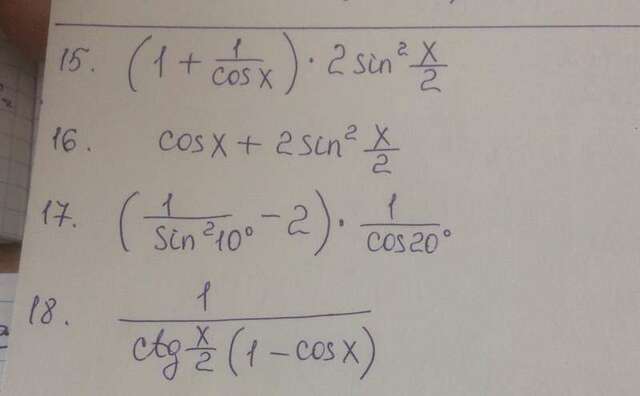 15. (1 + 1/cosx) · 2sin² x/2
16. cosx + 2sin² x/2
17. (1/sin²10° − 2) · 1/cos20°
18. 1/(ctg x/2 (1 − cosx))